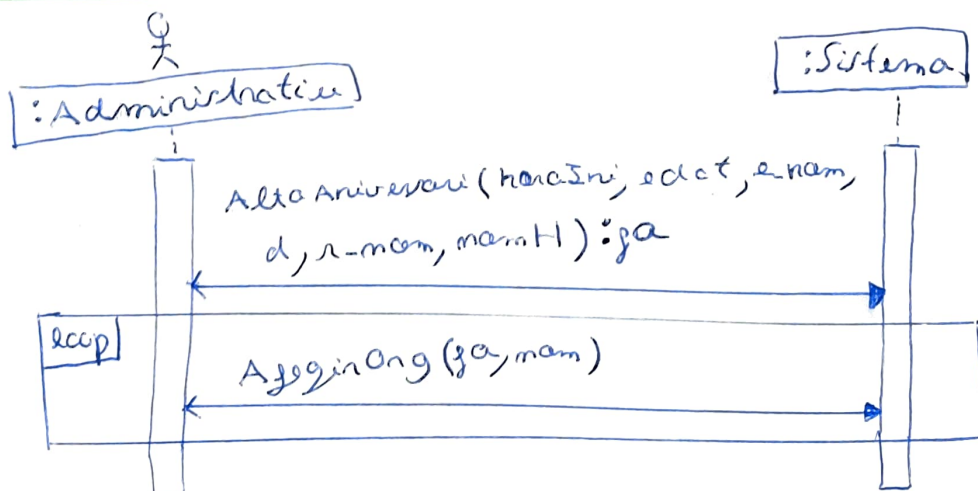 :Administratiu
:Sistema
AltaAniversari(horaIni, edat, e-nom,
d, r-nom, nomH):ga
loop
AfegirOng(ga, nom)